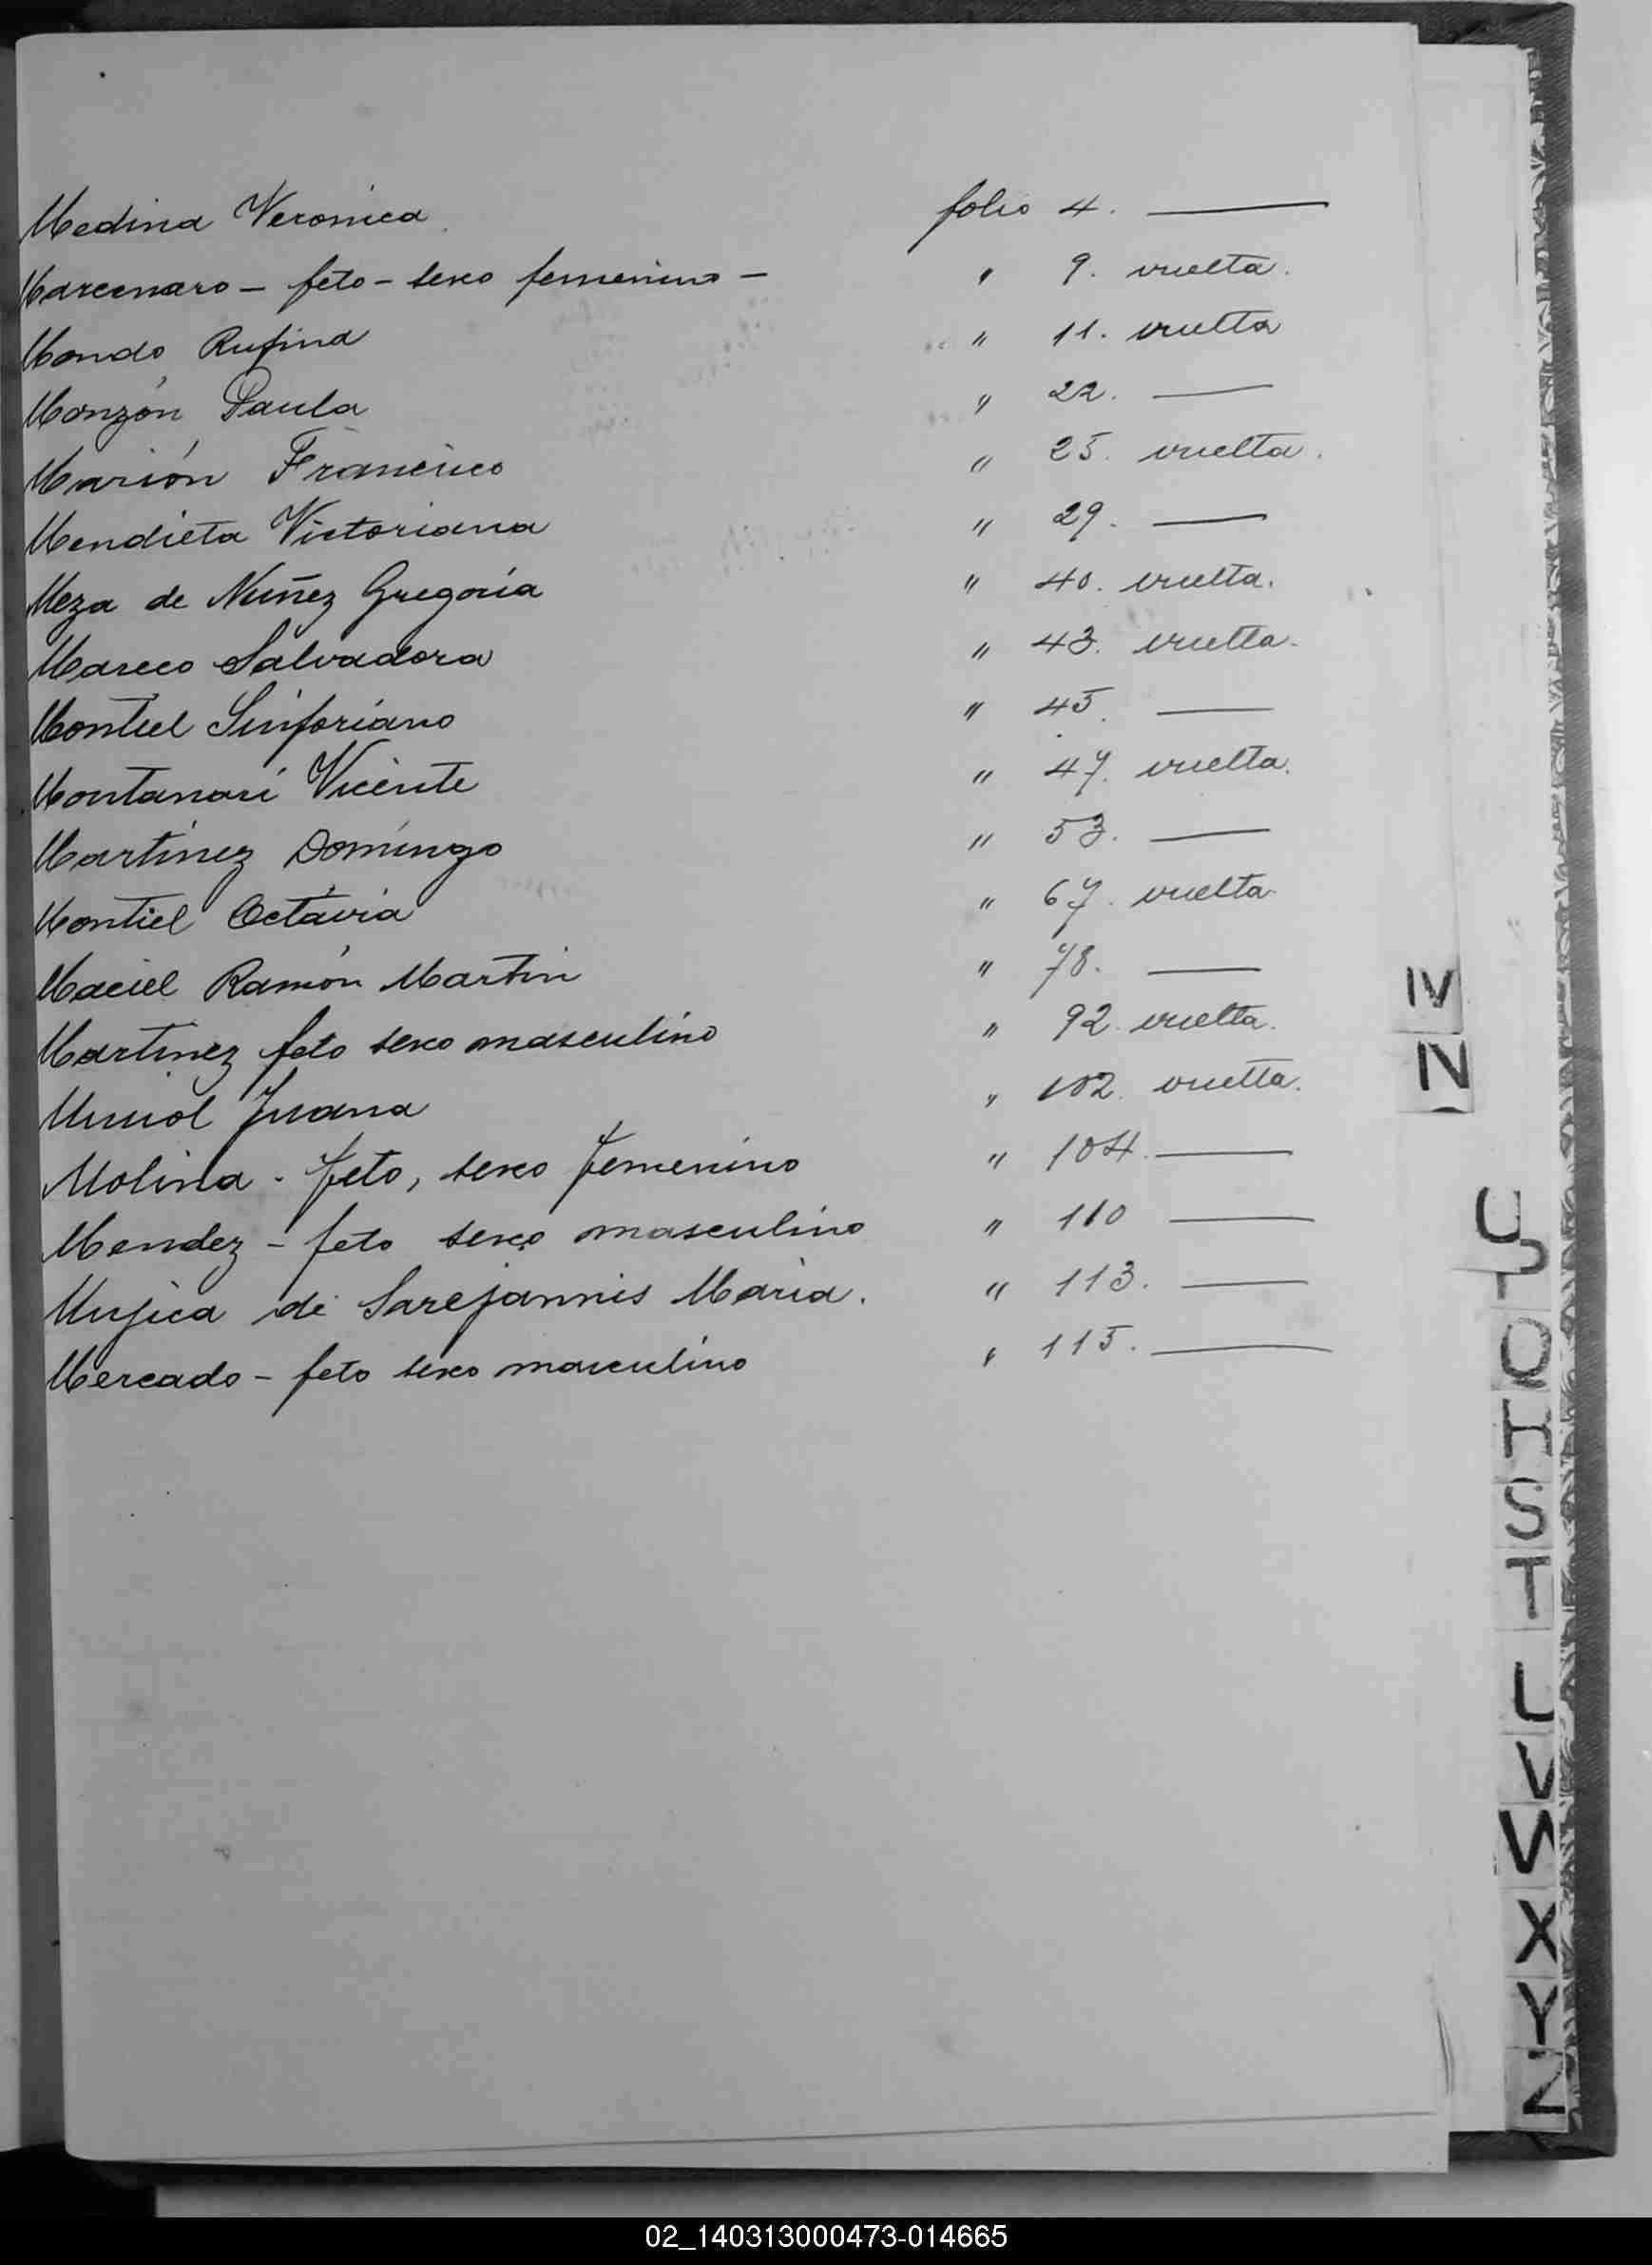 Medina Veronica folio 4. —
Marcenaro - feto - sexo femenino - " 9. vuelta.
Mondo Rufina " 11. vuelta
Monzón Paula " 22. —
Marión Francisco " 25. vuelta.
Mendieta Victoriana " 29. —
Meza de Nuñez Gregoria " 40. vuelta.
Mareco Salvadora " 43. vuelta.
Montiel Sinforiano " 45. —
Montanari Vicente " 47. vuelta.
Martinez Domingo " 53. —
Montiel Octavia " 67. vuelta.
Maciel Ramón Martin " 78. —
Martinez feto sexo masculino " 92. vuelta.
Juana " 102. vuelta.
Molina - feto, sexo femenino " 104. —
Mendez - feto sexo masculino " 110 —
Mujica de Sarejannis Maria. " 113. —
Mercado - feto sexo masculino " 115. —
N
S
V
W
X
Y
Z
02_140313000473-014665